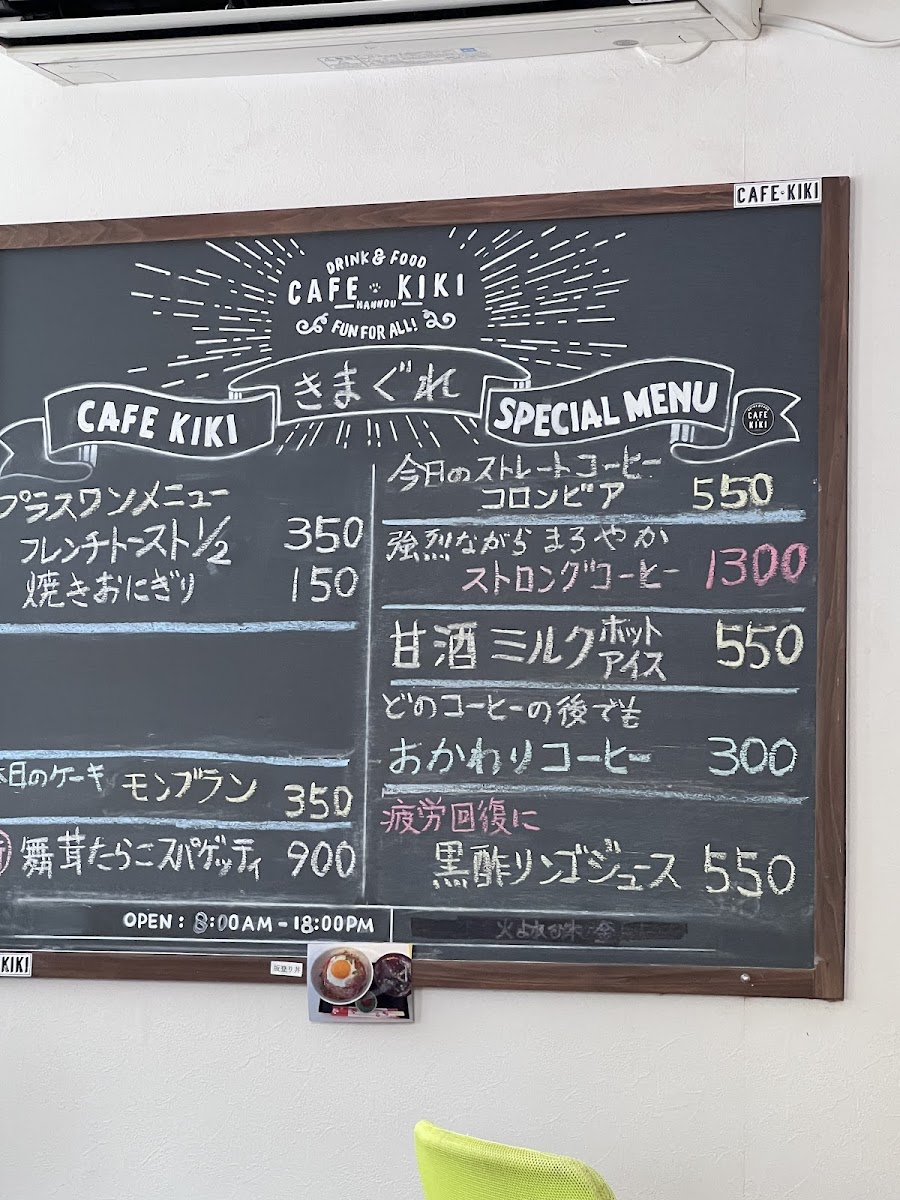 CAFE KIKI
DRINK & FOOD
CAFE KIKI
HANNOU
FUN FOR ALL!
きまぐれ
CAFE KIKI
SPECIAL MENU
CAFE
KIKI
プラスワンメニュー
フレンチトースト1/2 350
焼きおにぎり 150
本日のケーキ モンブラン 350
舞茸たらこスパゲッティ 900
今日のストレートコーヒー
コロンビア 550
強烈ながらまろやか
ストロングコーヒー 1300
甘酒ミルク ホット 550
アイス
どのコーヒーの後でも
おかわりコーヒー 300
疲労回復に
黒酢リンゴジュース 550
OPEN : 8:00AM - 18:00PM
KIKI